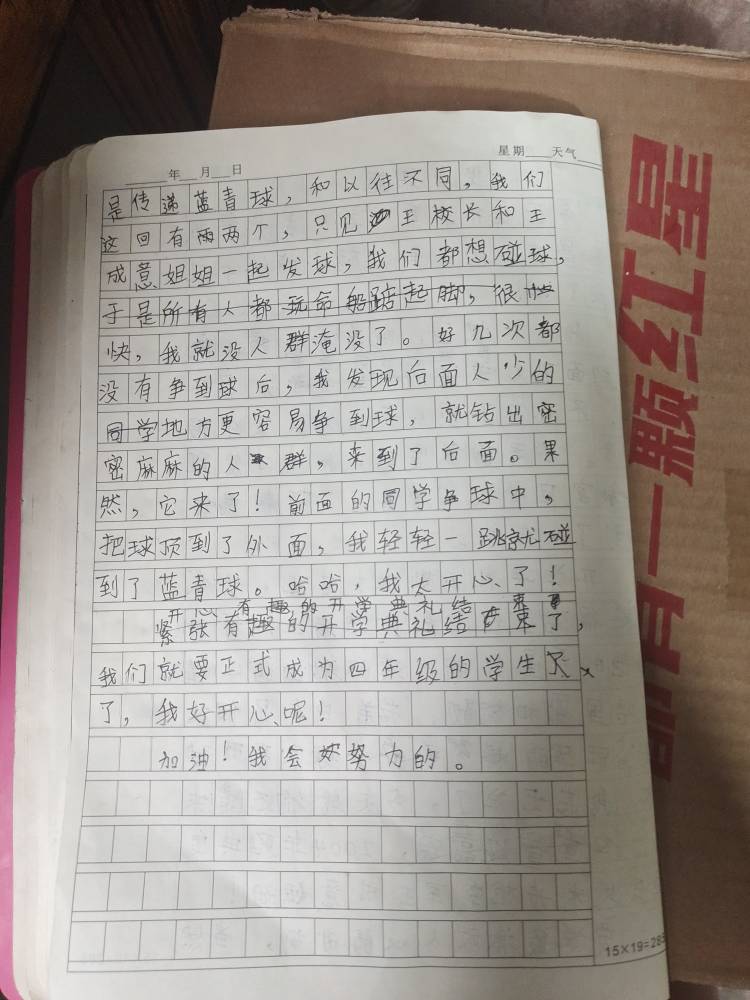 年 月 日 星期 天气
是传递蓝青球，和以往不同，我们
这回有两个，只见王校长和王
成意姐姐一起发球，我们都想碰球，
于是所有人都玩命般踮起脚，很
快，我就没人群淹没了。好几次都
没有争到球后，我发现后面人少的
同学地方更容易争到球，就钻出密
密麻麻的人群，来到了后面。果
然，它来了！前面的同学争球中，
把球顶到了外面，我轻轻一跳就碰
到了蓝青球。哈哈，我太开心了！
开心有趣的开学典礼结束
紧张有趣的开学典礼结束了，
我们就要正式成为四年级的学生
了，我好开心呢！
加油！我会努力的。
15×19=285
一颗红星